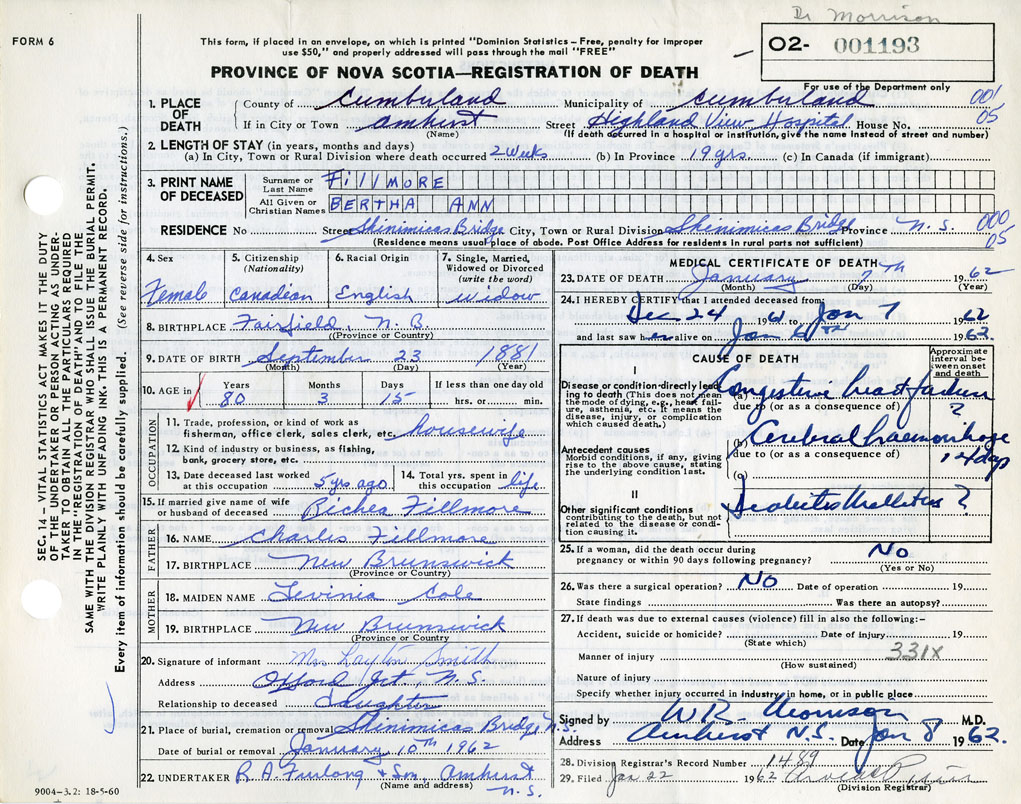 Dr Morrison
FORM 6
This form, if placed in an envelope, on which is printed "Dominion Statistics – Free, penalty for improper
use $50," and properly addressed will pass through the mail "FREE"
O2- 001193
For use of the Department only
PROVINCE OF NOVA SCOTIA—REGISTRATION OF DEATH
1. PLACE OF DEATH
County of Cumberland Municipality of Cumberland 001
05
If in City or Town Amherst Street Highland View Hospital House No.
(Name) (If death occurred in a hospital or institution, give the name instead of street and number)
2. LENGTH OF STAY (in years, months and days)
(a) In City, Town or Rural Division where death occurred 2 Weeks (b) In Province 19 yrs. (c) In Canada (if immigrant)
3. PRINT NAME OF DECEASED
Surname or Last Name FillMORE
All Given or Christian Names BERTHA ANN
RESIDENCE No Street Shinimicas Bridge City, Town or Rural Division Shinimicas Bridge Province N.S. 000
05
(Residence means usual place of abode. Post Office Address for residents in rural parts not sufficient)
4. Sex
Female
5. Citizenship
(Nationality)
Canadian
6. Racial Origin
English
7. Single, Married,
Widowed or Divorced
(write the word)
Widow
8. BIRTHPLACE Fairfield, N.B.
(Province or Country)
9. DATE OF BIRTH September 23 1881
(Month) (Day) (Year)
10. AGE in
Years Months Days If less than one day old
80 3 15 hrs. or min.
OCCUPATION
11. Trade, profession, or kind of work as
fisherman, office clerk, sales clerk, etc. housewife
12. Kind of industry or business, as fishing,
bank, grocery store, etc.
13. Date deceased last worked
at this occupation 5 yrs ago
14. Total yrs. spent in
this occupation life
15. If married give name of wife
or husband of deceased Fillmore
FATHER
16. NAME Charles Fillmore
17. BIRTHPLACE New Brunswick
(Province or Country)
MOTHER
18. MAIDEN NAME Levinia Cole
19. BIRTHPLACE New Brunswick
(Province or Country)
20. Signature of informant Mrs Layton Smith
Address Oxford Jct, N.S.
Relationship to deceased Daughter
21. Place of burial, cremation or removal Shinimicas Bridge, N.S.
Date of burial or removal January 10th 1962
22. UNDERTAKER R.A. Furlong & Son, Amherst
(Name and address) N.S.
MEDICAL CERTIFICATE OF DEATH
23. DATE OF DEATH January 7th 1962
(Month) (Day) (Year)
24. I HEREBY CERTIFY that I attended deceased from:
Dec. 24 1961 to Jan 7 1962
and last saw her alive on Jan 1962
CAUSE OF DEATH
Approximate
interval be-
tween onset
and death
I
Disease or condition directly lead-
ing to death (This does not mean
the mode of dying, e.g., heart fail-
ure, asthenia, etc. It means the
disease, injury, or complication
which caused death.)
(a) Congestive heart failure ?
due to (or as a consequence of)
Antecedent causes
Morbid conditions, if any, giving
rise to the above cause, stating
the underlying condition last.
(b) Cerebral haemorrhage 14 days
due to (or as a consequence of)
(c)
II
Other significant conditions
contributing to the death, but not
related to the disease or condi-
tion causing it.
Diabetes Mellitus ?
25. If a woman, did the death occur during
pregnancy or within 90 days following pregnancy? No
(Yes or No)
26. Was there a surgical operation? No Date of operation 19
State findings Was there an autopsy?
27. If death was due to external causes (violence) fill in also the following:–
Accident, suicide or homicide? Date of injury 19
(State which)
Manner of injury 331X
(How sustained)
Nature of injury
Specify whether injury occurred in industry, in home, or in public place
Signed by M.D.
Address Amherst N.S. Date Jan 8 1962.
28. Division Registrar's Record Number 1489
29. Filed Jan 22 1962
(Division Registrar)
SEC. 14 – VITAL STATISTICS ACT MAKES IT THE DUTY
OF THE UNDERTAKER OR PERSON ACTING AS UNDER-
TAKER TO OBTAIN ALL THE PARTICULARS REQUIRED
IN THE "REGISTRATION OF DEATH" AND TO FILE THE
SAME WITH THE DIVISION REGISTRAR WHO SHALL ISSUE THE BURIAL PERMIT.
WRITE PLAINLY WITH UNFADING INK. THIS IS A PERMANENT RECORD.
Every item of information should be carefully supplied. (See reverse side for instructions.)
9004–3.2: 18-5-60